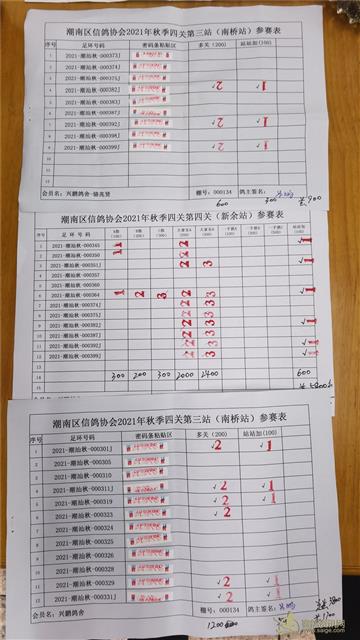 潮南区信鸽协会2021年秋季四关第三站（南桥站）参赛表
序号 足环号码 密码条粘贴区 多关(200) 站站加(100)
1 2021-潮汕秋-000373J
2 2021-潮汕秋-000374J
3 2021-潮汕秋-000375J
4 2021-潮汕秋-000382J √2 √1
5 2021-潮汕秋-000387J
6 2021-潮汕秋-000392J √2 √1
7 2021-潮汕秋-000398J
8 2021-潮汕秋-000399J √2 √1
会员名：兴鹏鸽舍-骆兆贤 棚号：000134 鸽主签名：
600 300 900
潮南区信鸽协会2021年秋季四关第四关（新余站）参赛表
序号 足环号码
1 2021-潮汕秋-000345
2 2021-潮汕秋-000350
3 2021-潮汕秋-000351J
4 2021-潮汕秋-000355
5 2021-潮汕秋-000357
6 2021-潮汕秋-000360
7 2021-潮汕秋-000364 1 2 3
8 2021-潮汕秋-000374J
9 2021-潮汕秋-000375J
10 2021-潮汕秋-000382J
11 2021-潮汕秋-000392J
12 2021-潮汕秋-000399J
300 200 300 2000 2400 600
潮南区信鸽协会2021年秋季四关第三站（南桥站）参赛表
序号 足环号码 密码条粘贴区 多关(200) 站站加(100)
1 2021-潮汕秋-000301J √2 √1
2 2021-潮汕秋-000305
3 2021-潮汕秋-000310
4 2021-潮汕秋-000311J √2 √1
5 2021-潮汕秋-000319 √2 √1
6 2021-潮汕秋-000323 √2
7 2021-潮汕秋-000324
8 2021-潮汕秋-000325
9 2021-潮汕秋-000326
10 2021-潮汕秋-000328
11 2021-潮汕秋-000329 √2 √1
12 2021-潮汕秋-000331J √2 √1
会员名：兴鹏鸽舍 棚号：000134 鸽主签名：
1200
www.saige.com